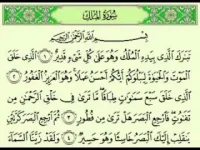 سُورَةُ المُلْكِ
بِسْمِ اللَّهِ الرَّحْمَٰنِ الرَّحِيمِ
تَبَٰرَكَ ٱلَّذِى بِيَدِهِ ٱلْمُلْكُ وَهُوَ عَلَىٰ كُلِّ شَىْءٍ قَدِيرٌ ١ ٱلَّذِى خَلَقَ
ٱلْمَوْتَ وَٱلْحَيَوٰةَ لِيَبْلُوَكُمْ أَيُّكُمْ أَحْسَنُ عَمَلًا وَهُوَ ٱلْعَزِيزُ ٱلْغَفُورُ ٢
ٱلَّذِى خَلَقَ سَبْعَ سَمَٰوَٰتٍ طِبَاقًا مَّا تَرَىٰ فِى خَلْقِ ٱلرَّحْمَٰنِ مِن
تَفَٰوُتٍ فَٱرْجِعِ ٱلْبَصَرَ هَلْ تَرَىٰ مِن فُطُورٍ ٣ ثُمَّ ٱرْجِعِ ٱلْبَصَرَ كَرَّتَيْنِ
يَنقَلِبْ إِلَيْكَ ٱلْبَصَرُ خَاسِئًا وَهُوَ حَسِيرٌ ٤ وَلَقَدْ زَيَّنَّا ٱلسَّمَآءَ